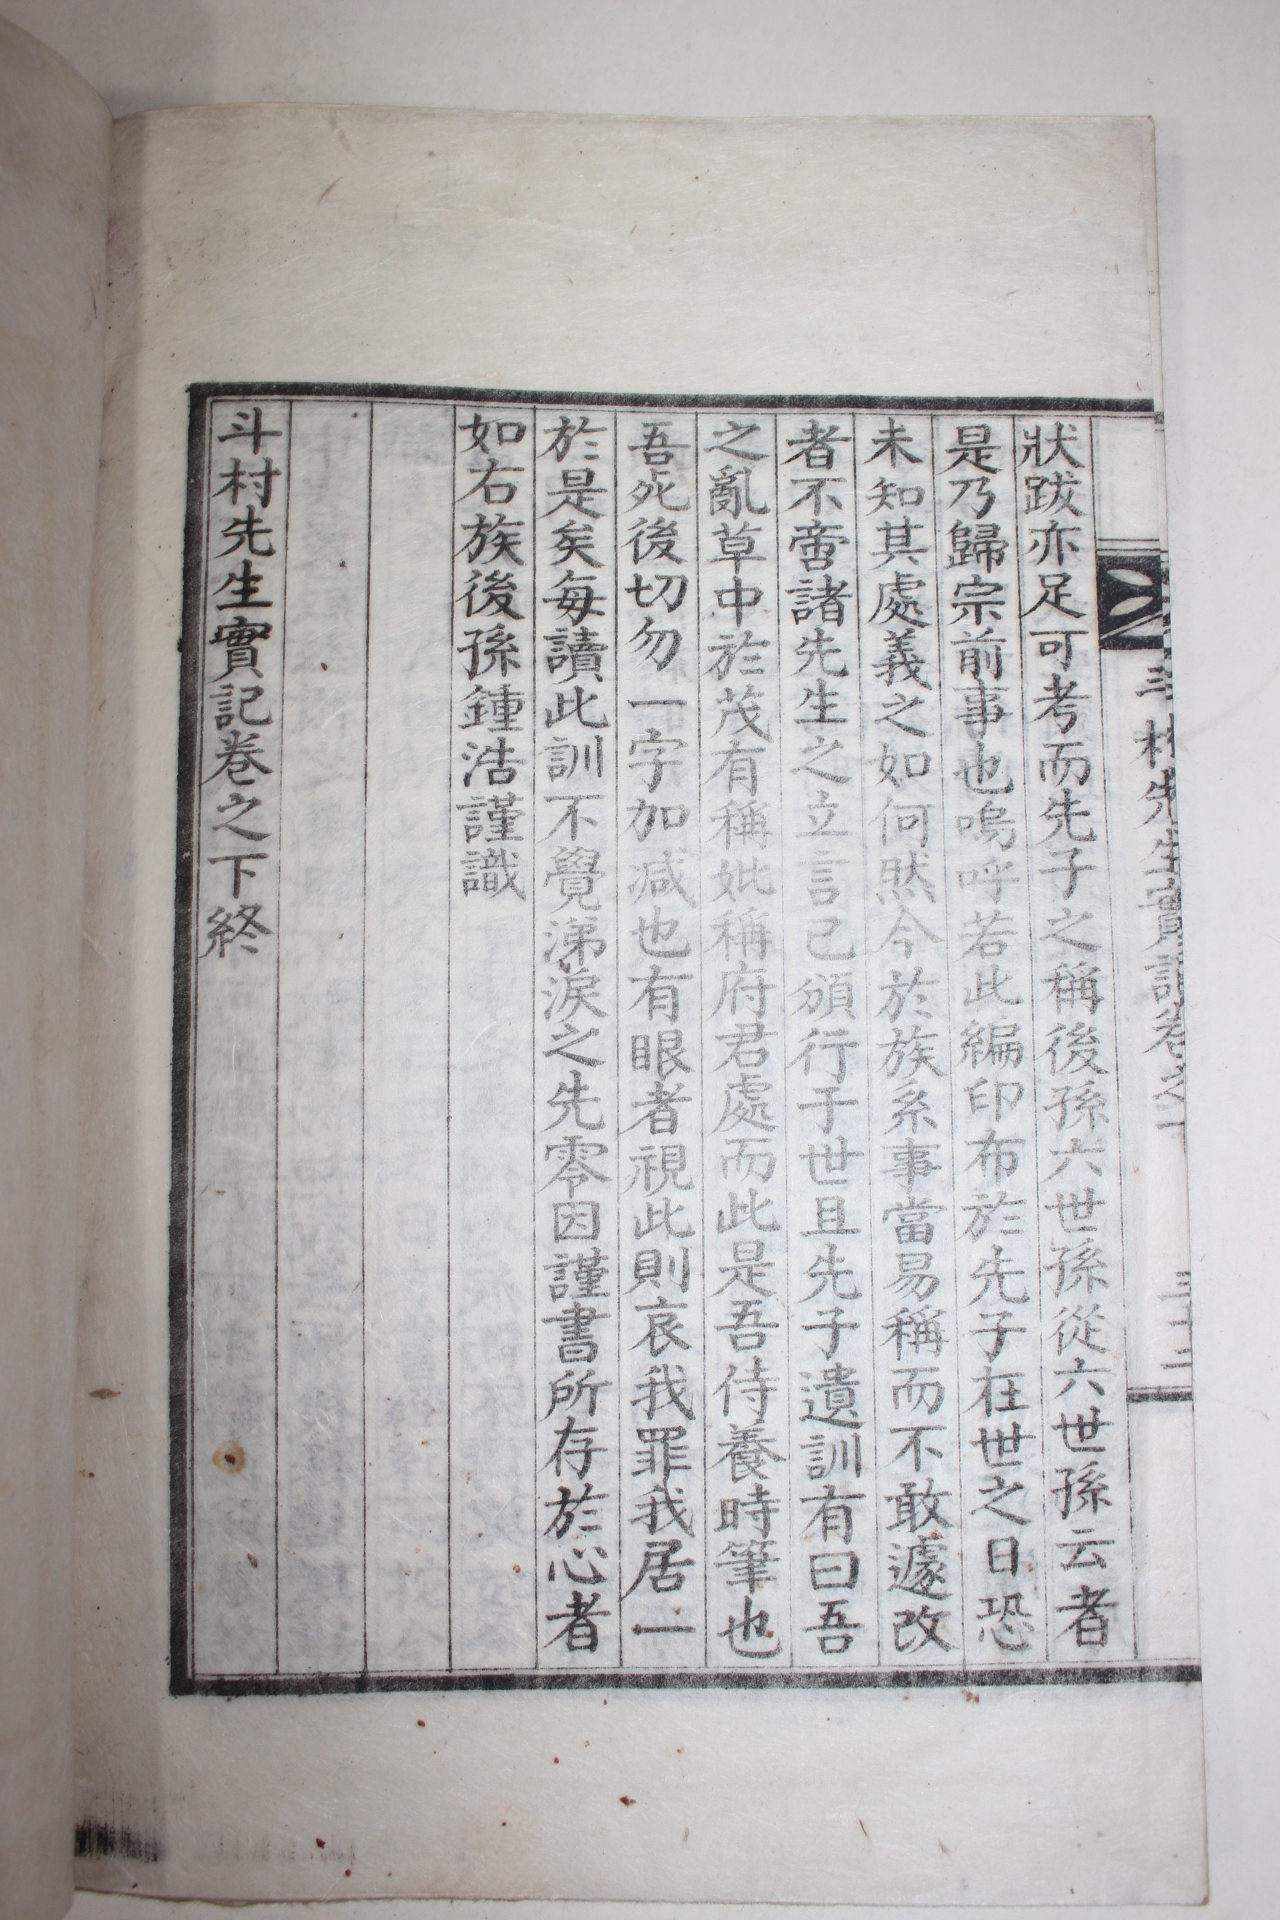 斗村先生實記卷之
三十二
狀跋亦足可考而先子之稱後孫六世孫從六世孫云者
是乃歸宗前事也嗚呼若此編印布於先子在世之日恐
未知其處義之如何然今於族系事當易稱而不敢遽改
者不啻諸先生之立言已頒行于世且先子遺訓有曰吾
之亂草中於茂有稱妣稱府君處而此是吾侍養時筆也
吾死後切勿一字加减也有眼者視此則哀我罪我居一
於是矣每讀此訓不覺涕淚之先零因謹書所存於心者
如右族後孫鍾浩謹識
斗村先生實記卷之下終